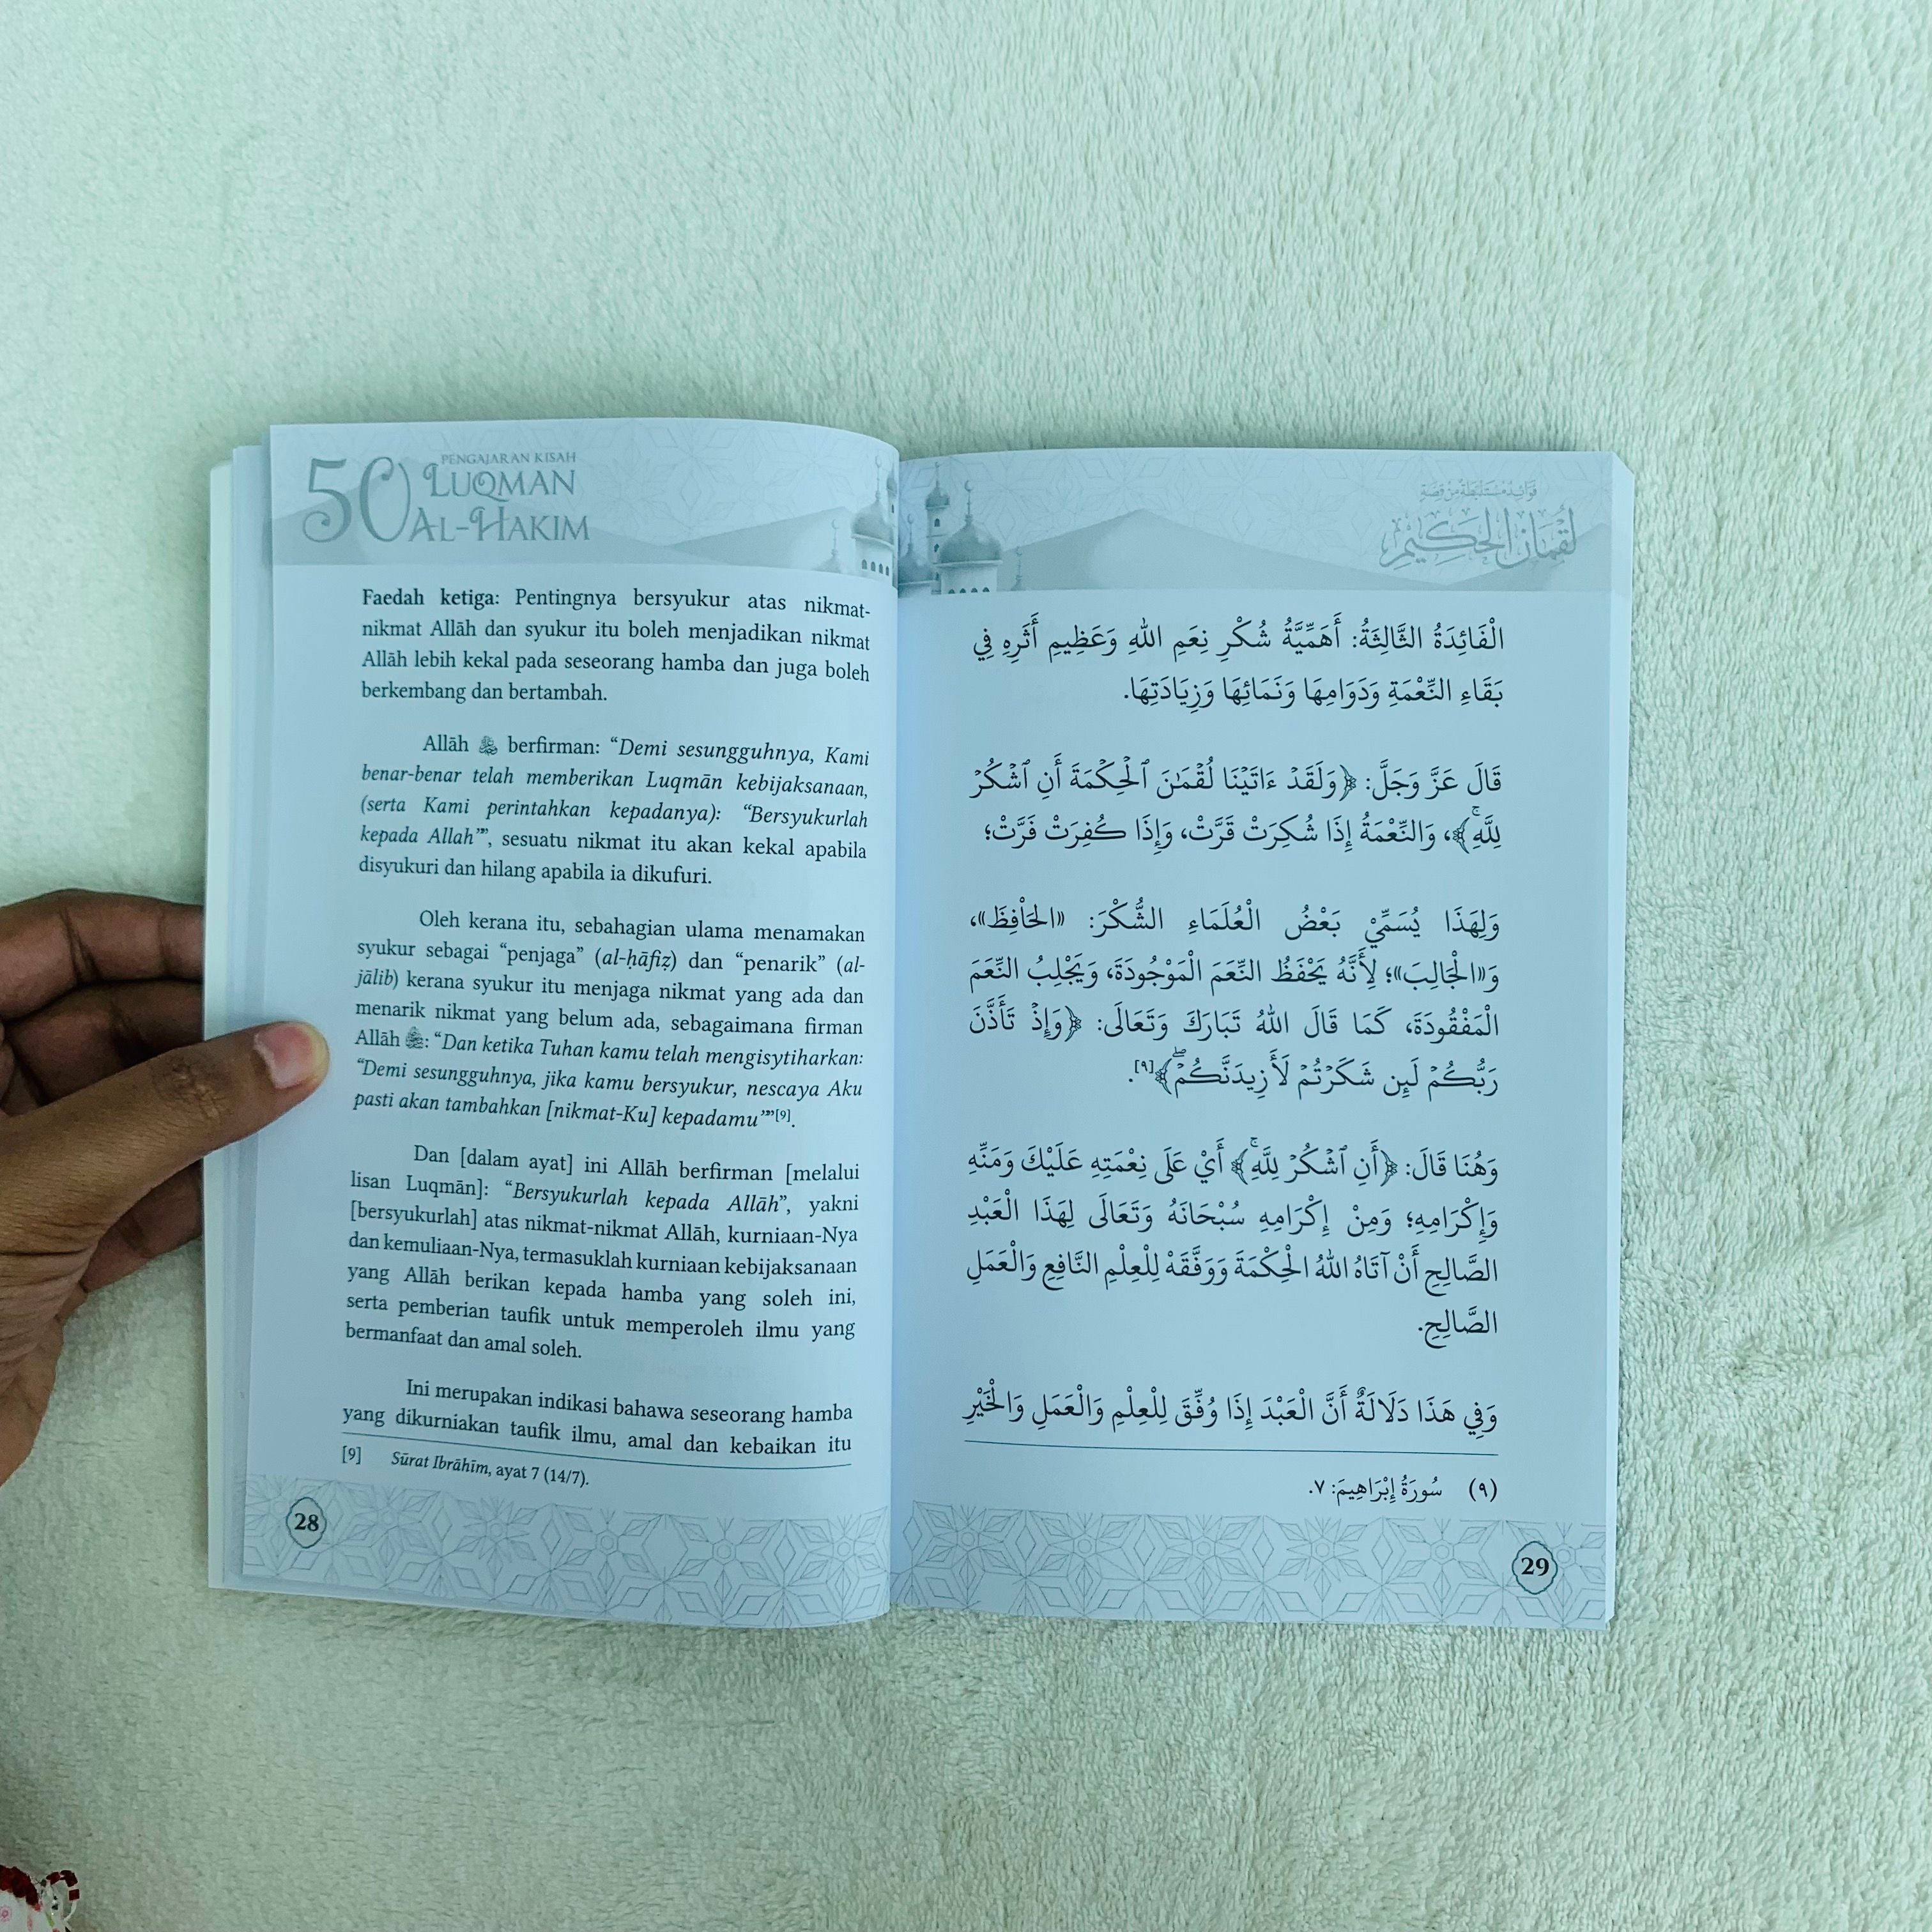 50 PENGAJARAN KISAH
LUQMAN
AL-HAKIM
Faedah ketiga: Pentingnya bersyukur atas nikmat-
nikmat Allāh dan syukur itu boleh menjadikan nikmat
Allāh lebih kekal pada seseorang hamba dan juga boleh
berkembang dan bertambah.
Allāh ﷻ berfirman: “Demi sesungguhnya, Kami
benar-benar telah memberikan Luqmān kebijaksanaan,
(serta Kami perintahkan kepadanya): “Bersyukurlah
kepada Allah””, sesuatu nikmat itu akan kekal apabila
disyukuri dan hilang apabila ia dikufuri.
Oleh kerana itu, sebahagian ulama menamakan
syukur sebagai “penjaga” (al-ḥāfiẓ) dan “penarik” (al-
jālib) kerana syukur itu menjaga nikmat yang ada dan
menarik nikmat yang belum ada, sebagaimana firman
Allāh ﷻ: “Dan ketika Tuhan kamu telah mengisytiharkan:
“Demi sesungguhnya, jika kamu bersyukur, nescaya Aku
pasti akan tambahkan [nikmat-Ku] kepadamu””[9].
Dan [dalam ayat] ini Allāh berfirman [melalui
lisan Luqmān]: “Bersyukurlah kepada Allāh”, yakni
[bersyukurlah] atas nikmat-nikmat Allāh, kurniaan-Nya
dan kemuliaan-Nya, termasuklah kurniaan kebijaksanaan
yang Allāh berikan kepada hamba yang soleh ini,
serta pemberian taufik untuk memperoleh ilmu yang
bermanfaat dan amal soleh.
Ini merupakan indikasi bahawa seseorang hamba
yang dikurniakan taufik ilmu, amal dan kebaikan itu
[9] Sūrat Ibrāhīm, ayat 7 (14/7).
28
فَوَائِدُ مُسْتَنْبَطَةٌ مِنْ قِصَّةِ
لُقْمَانَ الْحَكِيمِ
الْفَائِدَةُ الثَّالِثَةُ: أَهَمِّيَّةُ شُكْرِ نِعَمِ اللهِ وَعَظِيمِ أَثَرِهِ فِي
بَقَاءِ النِّعْمَةِ وَدَوَامِهَا وَنَمَائِهَا وَزِيَادَتِهَا.
قَالَ عَزَّ وَجَلَّ: ﴿وَلَقَدۡ ءَاتَيۡنَا لُقۡمَٰنَ ٱلۡحِكۡمَةَ أَنِ ٱشۡكُرۡ
لِلَّهِۚ﴾، وَالنِّعْمَةُ إِذَا شُكِرَتْ قَرَّتْ، وَإِذَا كُفِرَتْ فَرَّتْ؛
وَلِهَذَا يُسَمِّيْ بَعْضُ الْعُلَمَاءِ الشُّكْرَ: «الْحَافِظَ»،
وَ«الْجَالِبَ»؛ لِأَنَّهُ يَحْفَظُ النِّعَمَ الْمَوْجُودَةَ، وَيَجْلِبُ النِّعَمَ
الْمَفْقُودَةَ، كَمَا قَالَ اللهُ تَبَارَكَ وَتَعَالَى: ﴿وَإِذۡ تَأَذَّنَ
رَبُّكُمۡ لَئِن شَكَرۡتُمۡ لَأَزِيدَنَّكُمۡۖ﴾[٩].
وَهُنَا قَالَ: ﴿أَنِ ٱشۡكُرۡ لِلَّهِۚ﴾ أَيْ عَلَى نِعْمَتِهِ عَلَيْكَ وَمَنِّهِ
وَإِكْرَامِهِ؛ وَمِنْ إِكْرَامِهِ سُبْحَانَهُ وَتَعَالَى لِهَذَا الْعَبْدِ
الصَّالِحِ أَنْ آتَاهُ اللهُ الْحِكْمَةَ وَوَفَّقَهْ لِلْعِلْمِ النَّافِعِ وَالْعَمَلِ
الصَّالِحِ.
وَفِي هَذَا دَلَالَةٌ أَنَّ الْعَبْدَ إِذَا وُفِّقَ لِلْعِلْمِ وَالْعَمَلِ وَالْخَيْرِ
(٩) سُورَةُ إِبْرَاهِيمَ: ٧.
29